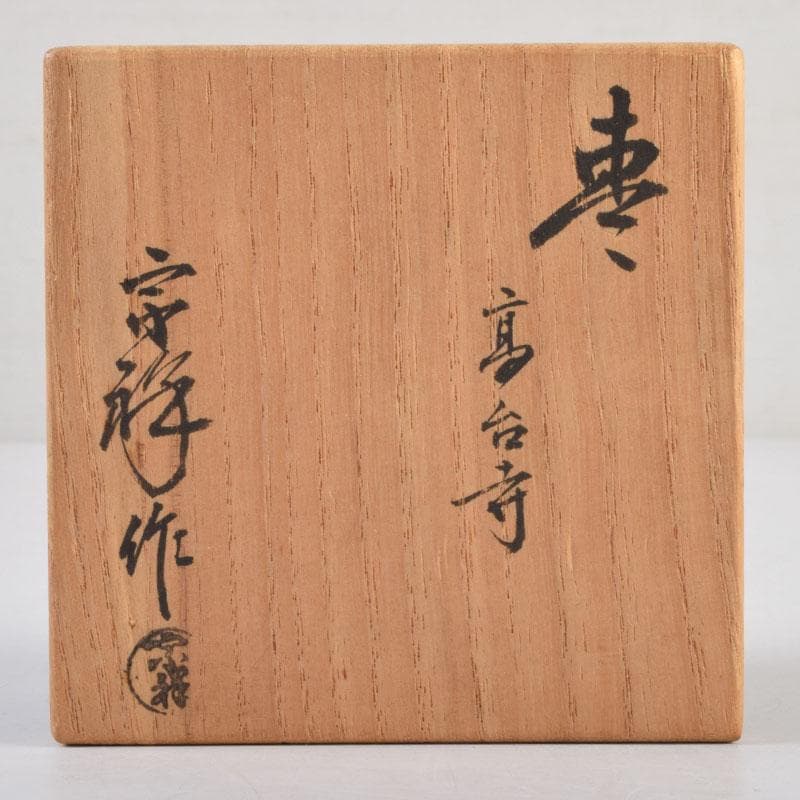 棗
高台寺
宗祥作
宗祥